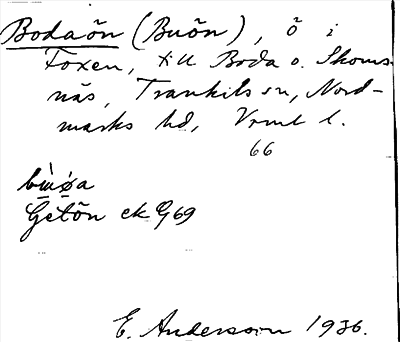 Bodaön (Buön), ö i
Foxen, till Boda o. Skoms-
näs, Trankils sn, Nord-
marks hd, Vrml l.
66
Getön ek G69
E. Anderson 1936.